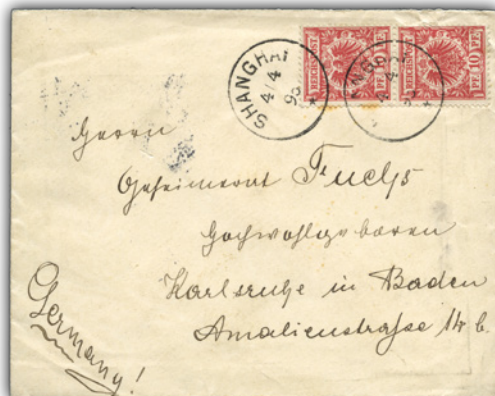 SHANGHAI
4/4
REICHSPOST
PF. 10 PF.
REICHSPOST
PF. 10 PF.
Herrn
Geheimerat Fuchs
Hochwohlgeboren
Karlsruhe in Baden
Amalienstraße 14 b.
Germany!